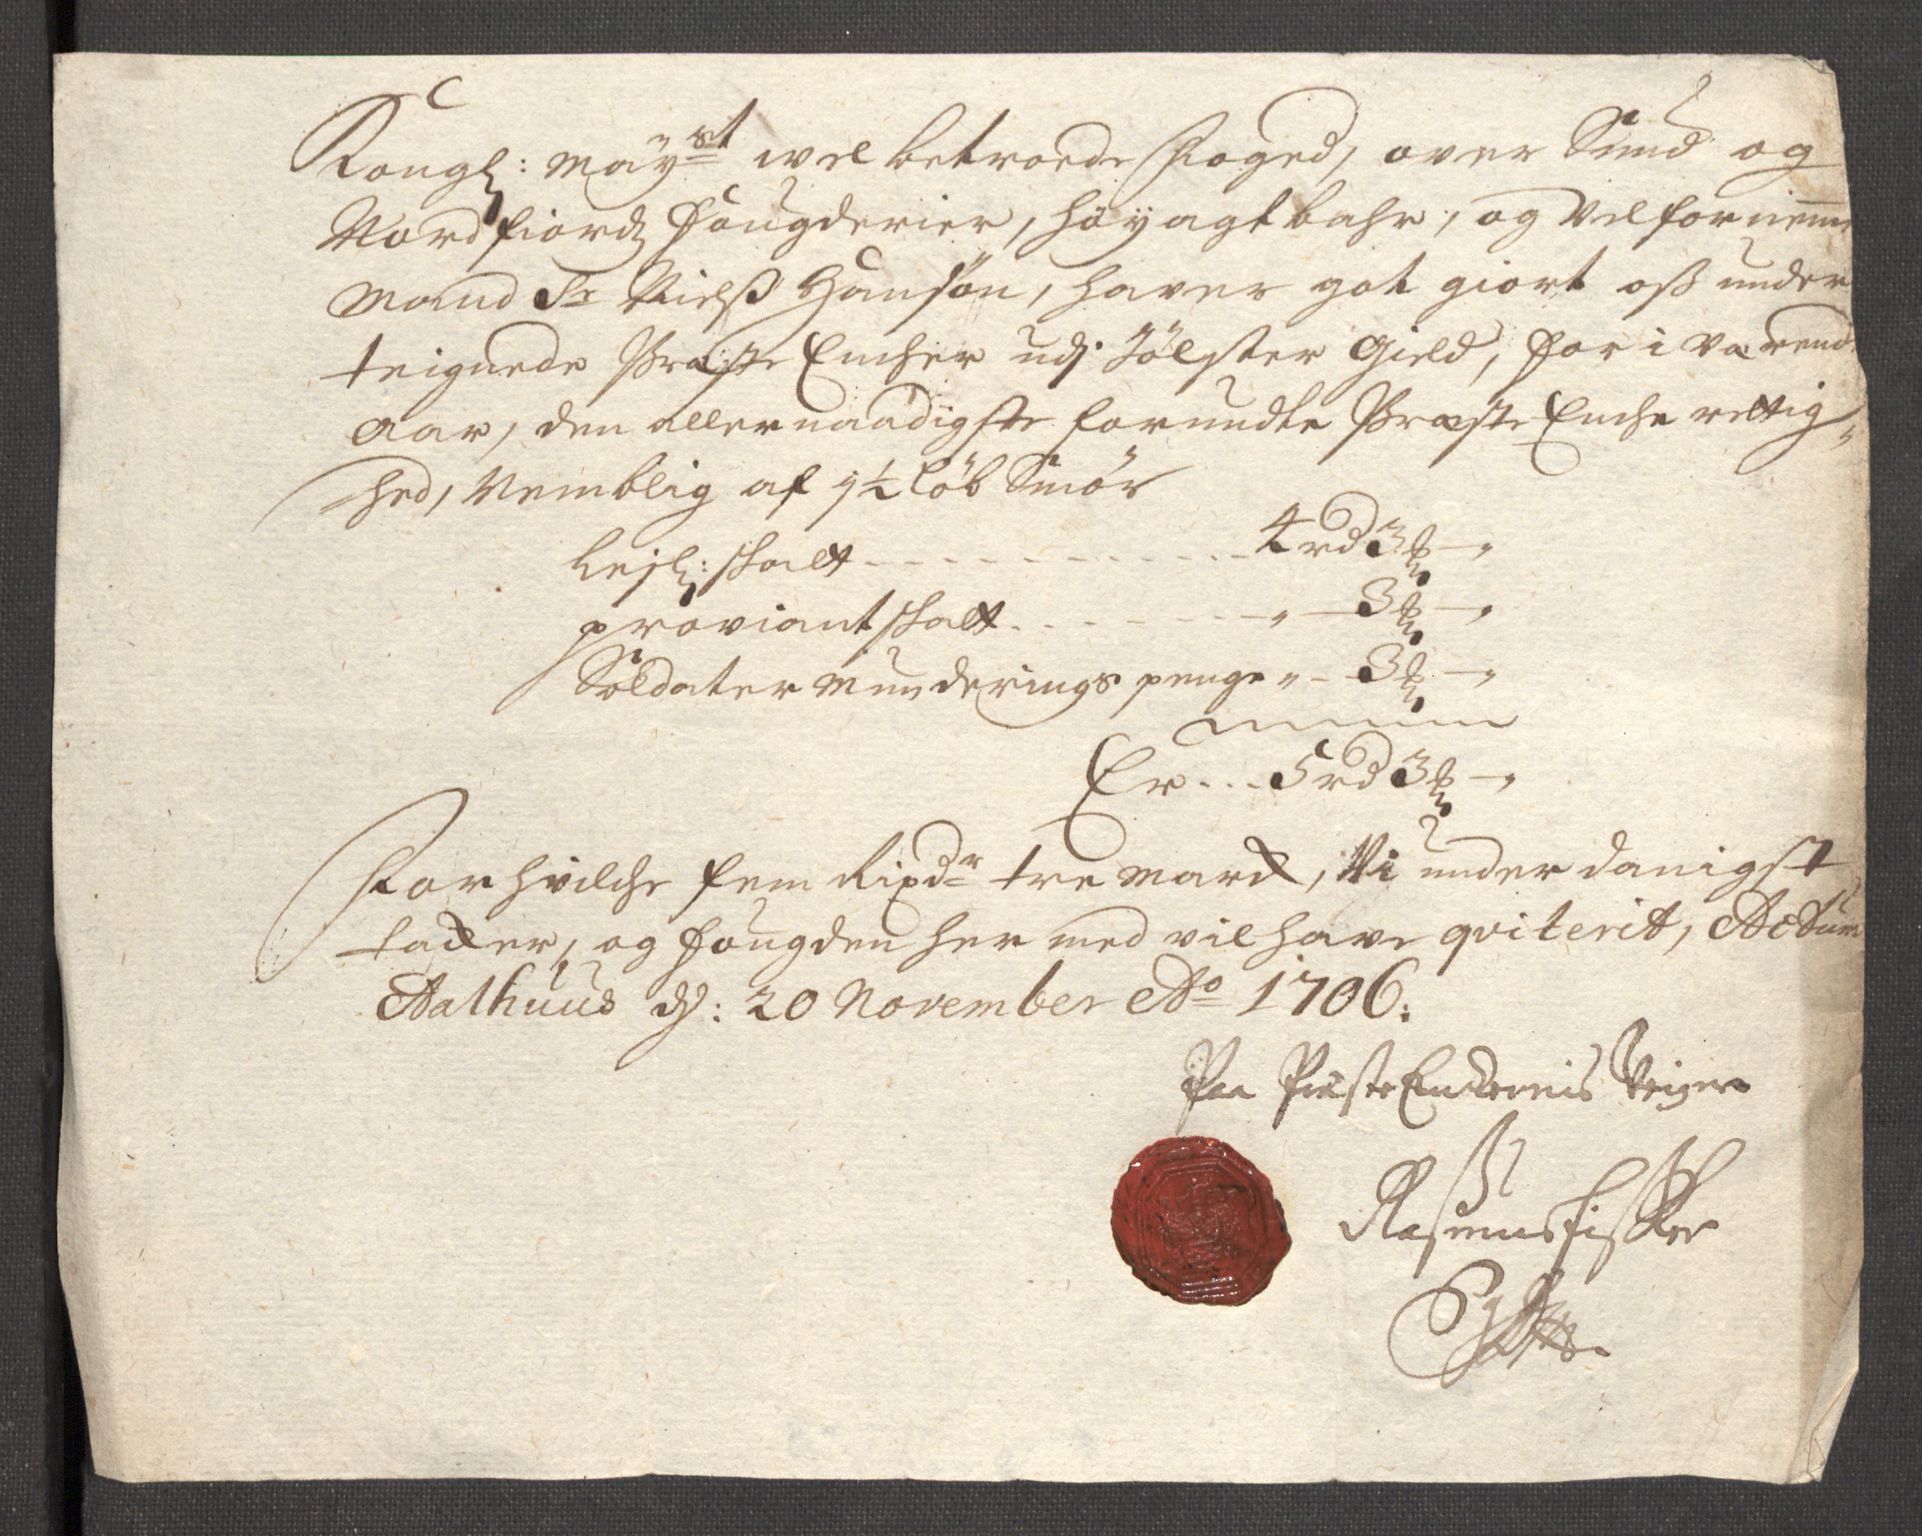 Kongl: Maÿst welbetroede Foged, over Sund og
Nordfiords Fougderier, høyagtbahr, og Velfornemme
Mand Sr Nielß Hansøn, haver got giort oß under
teignede Præste Encher udj Jølster Gield, for i værend
Aar, den allernaadigste forundte Præste Enche rettig,,
hed, Nemblig af 1½ Løb Smør
Lejl: skatt - - - 4 rd 3 ℳ - "
proviantskatt - - - " - 3 ℳ - "
Soldater munderings penge " - 3 ℳ - "
Er . . . 5 rd 3 ℳ - "
For hvilche fem Rixdr tre march, Vi underdanigst
tacker, og fougden her med vil have qviterit, Actum
Aalhuus d: 20 November Ao 1706.
Paa Præste Enckernis Veigne
Rasmus Fisker